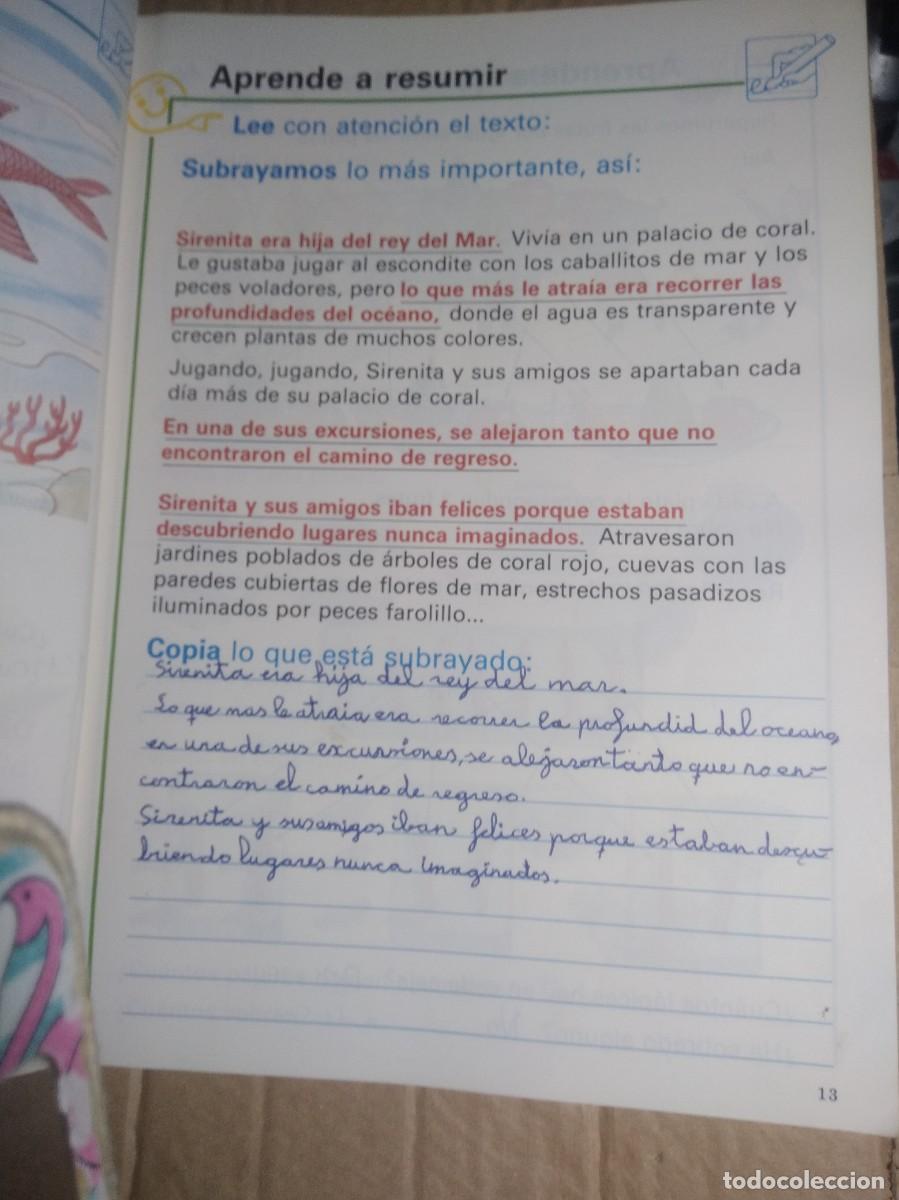 Aprende a resumir
Lee con atención el texto:
Subrayamos lo más importante, así:
Sirenita era hija del rey del Mar. Vivía en un palacio de coral.
Le gustaba jugar al escondite con los caballitos de mar y los
peces voladores, pero lo que más le atraía era recorrer las
profundidades del océano, donde el agua es transparente y
crecen plantas de muchos colores.
Jugando, jugando, Sirenita y sus amigos se apartaban cada
día más de su palacio de coral.
En una de sus excursiones, se alejaron tanto que no
encontraron el camino de regreso.
Sirenita y sus amigos iban felices porque estaban
descubriendo lugares nunca imaginados. Atravesaron
jardines poblados de árboles de coral rojo, cuevas con las
paredes cubiertas de flores de mar, estrechos pasadizos
iluminados por peces farolillo...
Copia lo que está subrayado:
Sirenita era hija del rey del mar.
Lo que mas le atraia era recorrer la profundid del oceano,
en una de sus excursiones, se alejaron tanto que no en-
contraron el camino de regreso.
Sirenita y sus amigos iban felices porque estaban descu-
briendo lugares nunca imaginados.
13
todocoleccion